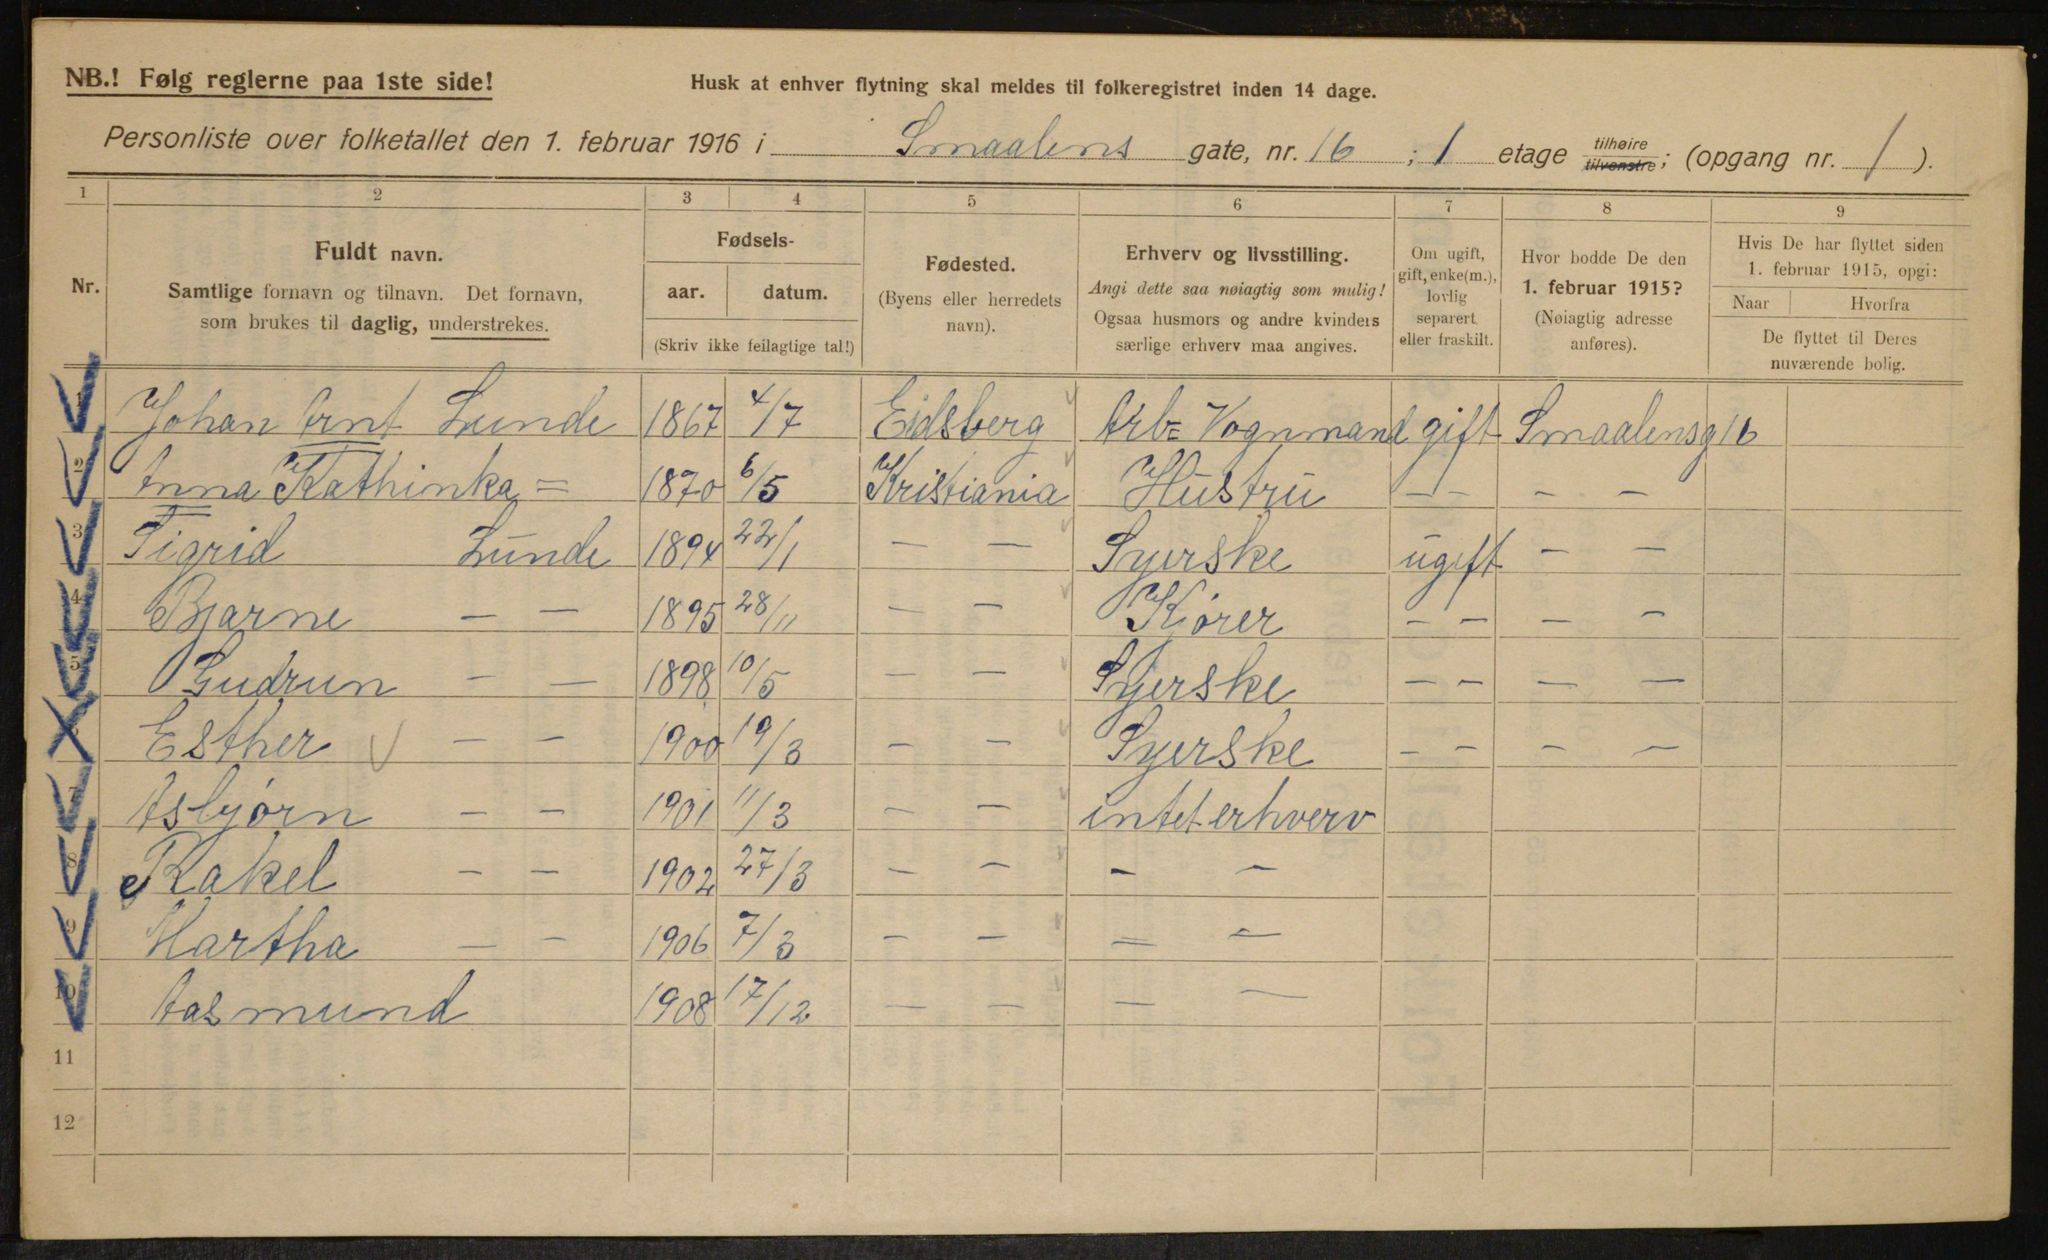 NB.! Følg reglerne paa 1ste side!
Husk at enhver flytning skal meldes til folkeregistret inden 14 dage.
Personliste over folketallet den 1. februar 1916 i Smaalens gate, nr. 16 ; 1 etage tilhøire tilvenstre; (opgang nr. 1 ).
1 2 3 4 5 6 7 8 9
Nr.
Fuldt navn.
Samtlige fornavn og tilnavn. Det fornavn,
som brukes til daglig, understrekes.
Fødsels-
aar. datum.
(Skriv ikke feilagtige tal!)
Fødested.
(Byens eller herredets
navn).
Erhverv og livsstilling.
Angi dette saa nøiagtig som mulig!
Ogsaa husmors og andre kvinders
særlige erhverv maa angives.
Om ugift,
gift, enke(m.),
lovlig
separert
eller fraskilt.
Hvor bodde De den
1. februar 1915?
(Nøiagtig adresse
anføres).
Hvis De har flyttet siden
1. februar 1915, opgi:
Naar Hvorfra
De flyttet til Deres
nuværende bolig.
1 Johan Arnt Lunde 1867 4/7 Eidsberg Arb= Vognmand gift Smaalensg 16
2 Anna Kathinka = 1870 6/5 Kristiania Hustru – – – –
3 Sigrid Lunde 1894 22/1 – – Syerske ugift – –
4 Bjarne – – 1895 28/11 – – Kjører – – – –
5 Gudrun – – 1898 10/5 – – Syerske – – – –
6 Esther – – 1900 19/3 – – Syerske – – – –
7 Asbjørn – – 1901 11/3 – – intet erhverv
8 Rakel – – 1902 27/3 – – – –
9 Martha – – 1906 7/3 – – – –
10 Aasmund 1908 17/12 – – – –
11
12